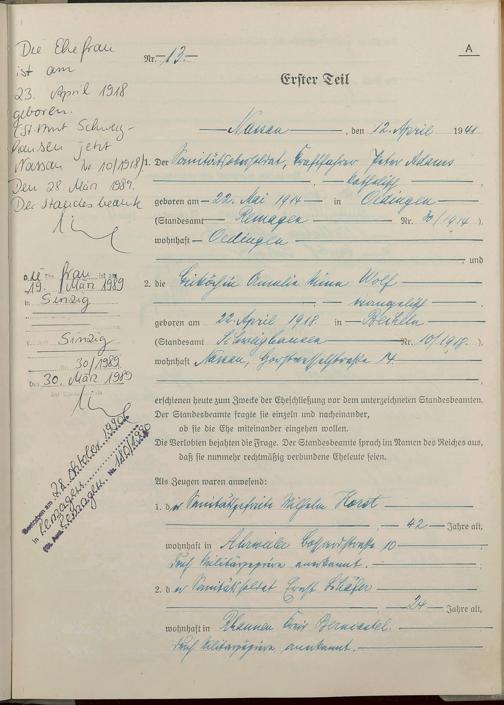 Die Ehefrau
ist am
23. April 1918
geboren.
St.Amt Schweig-
hausen jetzt
Nassau Nr 10/1918/
Den 28 März 1989.
Der Standesbeamte
frau
19. März 1989
Sinzig
Sinzig
30/1989
30. März 1989
28. Oktober 1990
in Remagen
Remagen Nr. 180/1990
A
Nr. 12.
Erster Teil
Nassau, den 12. April 1941
1. Der Sanitätsobersoldat, Kraftfahrer Peter Adams
katholisch
geboren am 22. Mai 1914 in Oedingen
(Standesamt Remagen Nr. 30/1914.)
wohnhaft Oedingen
und
2. die Köchin Wolf
evangelisch
geboren am 22. April 1918 in Bechelm
(Standesamt Schweighausen Nr. 10/1918.)
wohnhaft Nassau, 14.
erschienen heute zum Zwecke der Eheschließung vor dem unterzeichneten Standesbeamten.
Der Standesbeamte fragte sie einzeln und nacheinander,
ob sie die Ehe miteinander eingehen wollen.
Die Verlobten bejahten die Frage. Der Standesbeamte sprach im Namen des Reiches aus,
daß sie nunmehr rechtmäßig verbundene Eheleute seien.
Als Zeugen waren anwesend:
1. der Sanitätsgefreite Wilhelm Horst
42 Jahre alt,
wohnhaft in Ahrweiler 10
durch Militärpapiere anerkannt.
2. der Sanitätssoldat Ernst Schäfer
24 Jahre alt,
wohnhaft in Rhaunen Kreis Bernkastel.
durch Militärpapiere anerkannt.